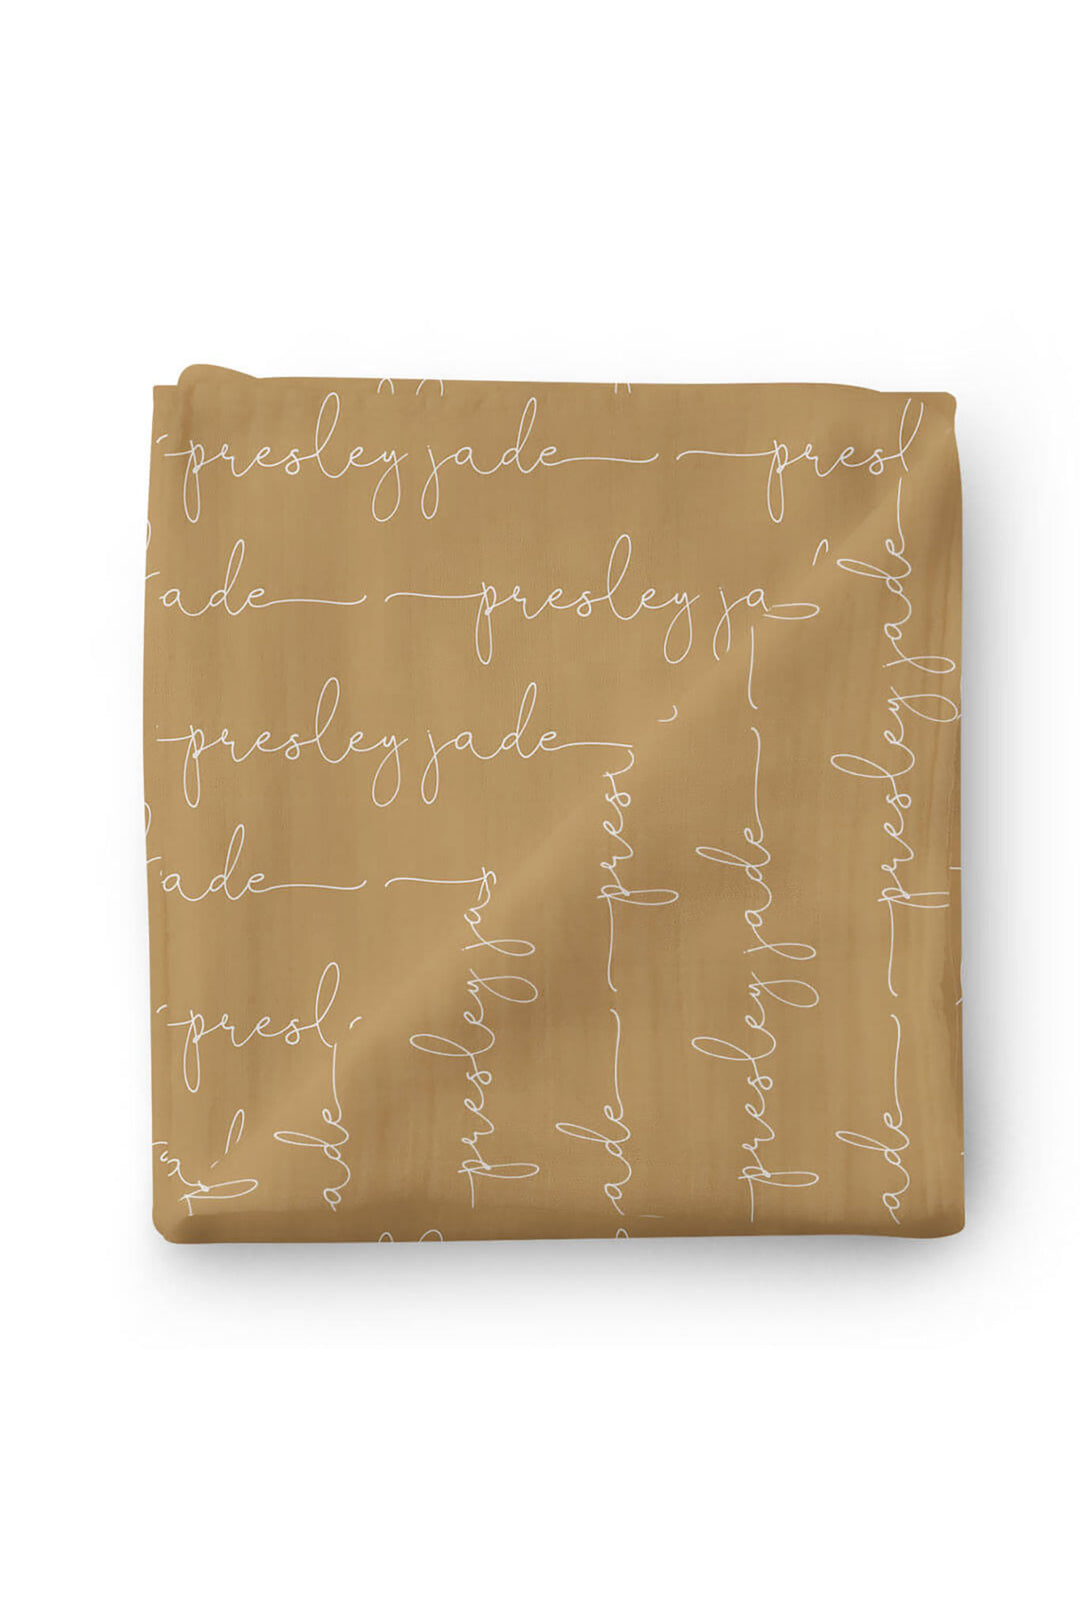 presley jade presl
ade presley ja
presley jade
ade
presl
presley ja
ade
pres
ade
presley jade
presley jade
ade